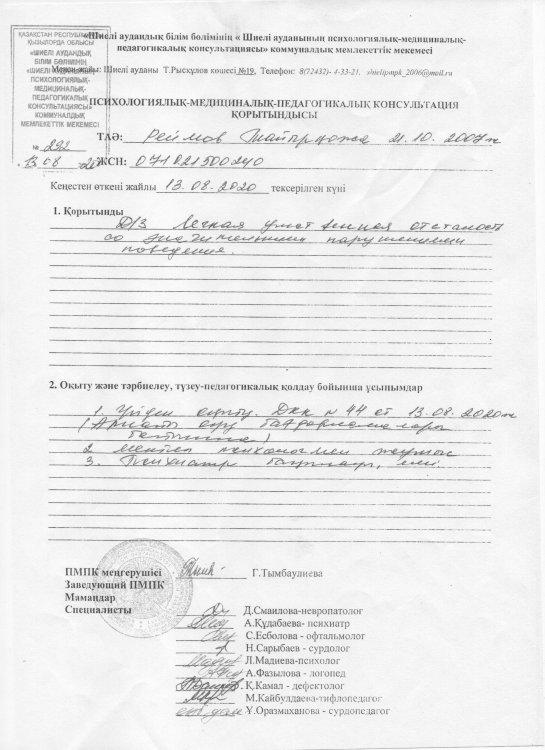 «Шиелі аудандық білім бөлімінің « Шиелі ауданының психологиялық-медициналық-
педагогикалық консультациясы» коммуналдық мемлекеттік мекемесі
Шиелі ауданы Т.Рысқұлов көшесі №19, Телефон: 8(72432)- 4-33-21. shielipmpk_2006@mail.ru
ҚАЗАҚСТАН РЕСПУБЛИКАСЫ
ҚЫЗЫЛОРДА ОБЛЫСЫ
«ШИЕЛІ АУДАНДЫҚ
БІЛІМ БӨЛІМІНІҢ
«ШИЕЛІ АУДАНЫНЫҢ
ПСИХОЛОГИЯЛЫҚ-
МЕДИЦИНАЛЫҚ-
ПЕДАГОГИКАЛЫҚ
КОНСУЛЬТАЦИЯСЫ»
КОММУНАЛДЫҚ
МЕМЛЕКЕТТІК МЕКЕМЕСІ
№ 292
13 08 20
ПСИХОЛОГИЯЛЫҚ-МЕДИЦИНАЛЫҚ-ПЕДАГОГИКАЛЫҚ КОНСУЛЬТАЦИЯ
ҚОРЫТЫНДЫСЫ
ТАӘ: Реймов 21.10.2007ж
ЖСН: 071021500240
Кеңестен өткені жайлы 13.08.2020 тексерілген күні
1. Қорытынды
Д/З Легкая умственная отсталость
со значительными нарушениями
поведения.
2. Оқыту және тәрбиелеу, түзеу-педагогикалық қолдау бойынша ұсынымдар
1. Үйден оқыту. ДКК N 44 от 13.08.2020ж
(Арнайы оқу бағдарламалары
бойынша)
2
3. Психиатр
ПМПК меңгерушісі Г.Тымбаулиева
Заведующий ПМПК
Мамандар
Специалисты Д.Смаилова-невропатолог
А.Құдабаева- психиатр
С.Есболова - офтальмолог
Н.Сарыбаев - сурдолог
Л.Мадиева-психолог
А.Фазылова - логопед
Қ.Камал - дефектолог
М.Кайбулдаева-тифлопедагог
Ұ.Оразмаханова - сурдопедагог